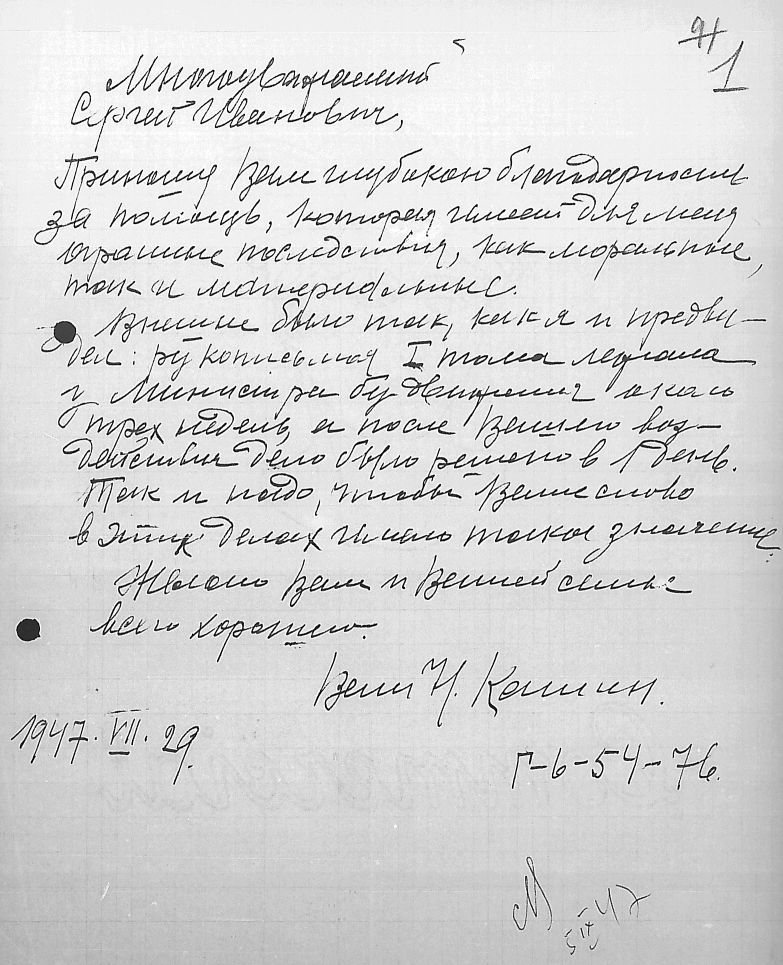 91
1
Многоуважаемый
Сергей Иванович,
Приношу Вам глубокую благодарность
за помощь, которая имеет для меня
огромные последствия, как моральные,
так и материальные.
Внешне было так, как я и предви-
дел: рукопись моя I тома лежала
у Министра без движения около
трех недель, а после Вашего воз-
действия дело было решено в 1 день.
Так и надо, чтобы Ваше слово
в этих делах имело такое значение.
Желаю Вам и Вашей семье
всего хорошего.
Ваш Н. Кашин.
1947. VII. 29.
Г-6-54-76.
5 IX 47